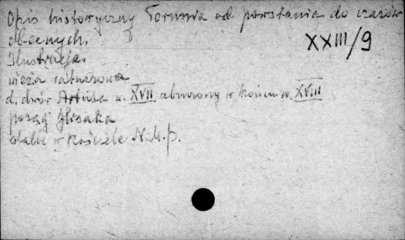 Opis historyczny Torunia od powstania do czasów
obecnych.
XXIII/9
Ilustracje.
wieża ratuszowa
d. dwór Artusa w. XVII zburzony w końcu w. XVIII
posąg flisaka
stalle w kościele N.M.P.